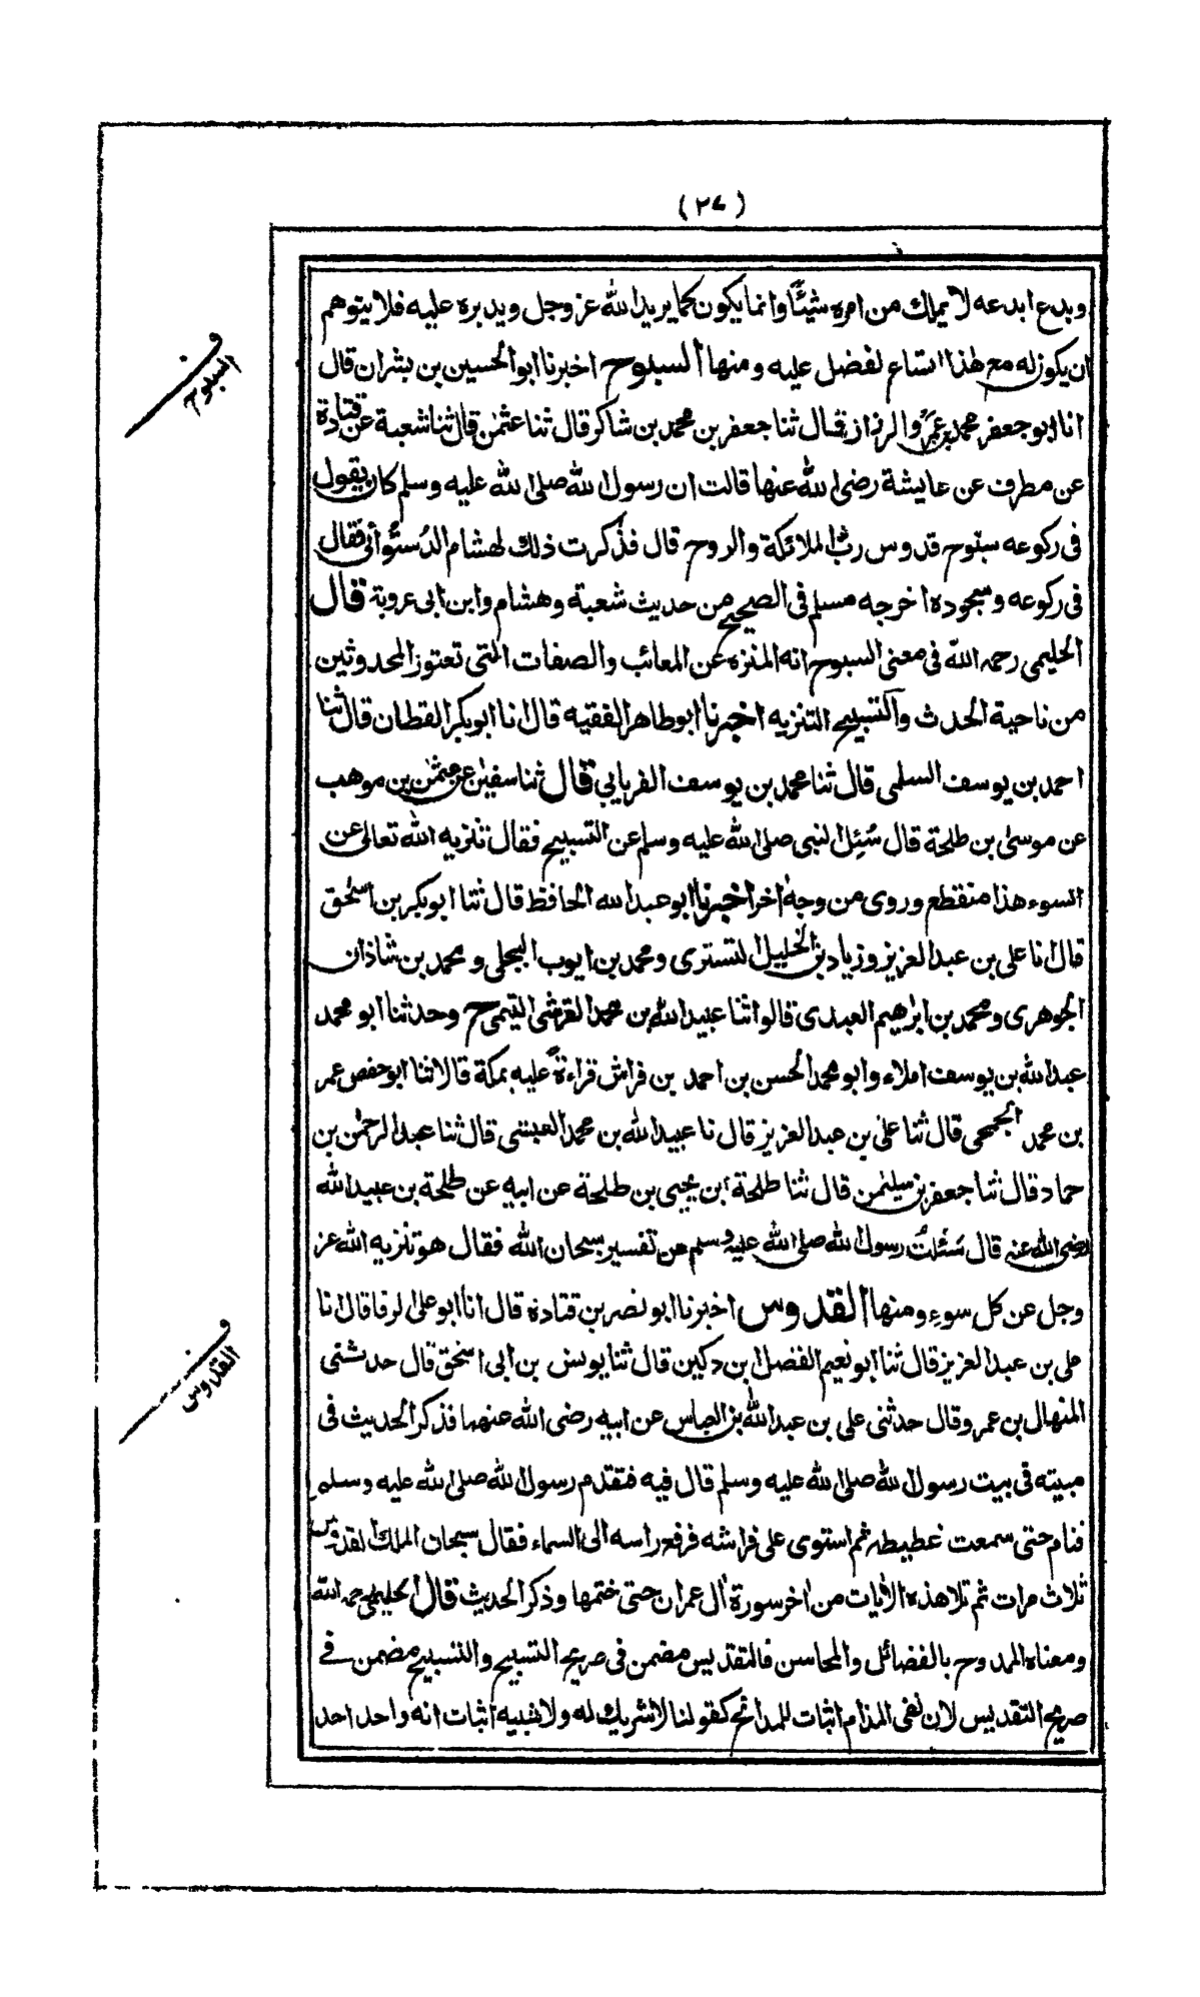 (٢٧)
وبدع ابدعه لا يملك من امره شيئًا وانما يكون كما يريد الله عز وجل ويدبره عليه فلا يتوهم
ان يكون له مع هذا اتساع لفضل عليه ومنها السبوح اخبرنا ابو الحسين بن بشران قال
السبوح
انا ابو جعفر محمد بن عمرو الرزاز قال ثنا جعفر بن محمد بن شاكر قال ثنا عثمٰن قال ثنا شعبة عن قتادة
عن مطرف عن عايشة رضى الله عنها قالت ان رسول الله صلى الله عليه وسلم كان يقول
فى ركوعه سبوح قدوس رب الملائكة والروح قال فذكرت ذلك لهشام الدُستُوأنى فقال
فى ركوعه وسجوده اخرجه مسلم فى الصحيح من حديث شعبة وهشام وابن ابى عروبة قال
الحليمى رحمه الله فى معنى السبوح انه المنزه عن المعائب والصفات التى تعتور المحدوثين
من ناحية الحدث والتسبيح التنزيه اخبرنا ابو طاهر الفقيه قال انا ابو بكر القطان قال ثنا
احمد بن يوسف السلمى قال ثنا محمد بن يوسف الفريابي قال ثنا سفيٰن عن عثمٰن بن موهب
عن موسىٰ بن طلحة قال سُئِل النبى صلى الله عليه وسلم عن التسبيح فقال تنزيه الله تعالى عن
السوء هذا منقطع وروى من وجه اٰخر اخبرنا ابو عبد الله الحافظ قال ثنا ابو بكر بن اسحٰق
قال انا على بن عبد العزيز وزياد بن الخليل التسترى ومحمد بن ايوب البجلى ومحمد بن شاذان
الجوهرى ومحمد بن ابراهيم العبدى قالوا ثنا عبيد الله بن محمد القرشى التيمى ح وحدثنا ابو محمد
عبد الله بن يوسف املاء وابو محمد الحسن بن احمد بن فراش قراءةً عليه بمكة قالا ثنا ابو حفص عمر
بن محمد الجمحى قال ثنا على بن عبد العزيز قال نا عبيد الله بن محمد العبسى قال ثنا عبد الرحمٰن بن
حماد قال ثنا جعفر بن سليمٰن قال ثنا طلحة بن يحيى بن طلحة عن ابيه عن طلحة بن عبيد الله
رضى الله عنه قال سَئَلتُ رسول الله صلى الله عليه وسلم عن تفسير سبحان الله فقال هو تنزيه الله عز
وجل عن كل سوءٍ ومنها القدوس اخبرنا ابو نصر بن قتادة قال انا ابو على الرفا قال انا
القدوس
على بن عبد العزيز قال ثنا ابو نعيم الفضل ابن دكين قال ثنا يونس بن ابى اسحٰق قال حدثنى
المنهال بن عمرو قال حدثنى على بن عبد الله بن العباس عن ابيه رضى الله عنهما فذكر الحديث فى
مبيته فى بيت رسول الله صلى الله عليه وسلم قال فيه فتقدم رسول الله صلى الله عليه وسلم
فنام حتى سمعت غطيطه ثم استوى على فراشه فرفع راسه الى السماء فقال سبحان الملك القدوس
ثلاث مرات ثم تلا هذه الاٰيات من اٰخر سورة اٰل عمران حتى ختمها وذكر الحديث قال الحليمى رحمه الله
ومعناه الممدوح بالفضائل والمحاسن فالتقديس مضمن فى صريح التسبيح والتسبيح مضمن فے
صريح التقديس لان نفى المذام اثبات للمدائح كقولنا لا شريك له ولا شبيه اثبات انه واحد احد